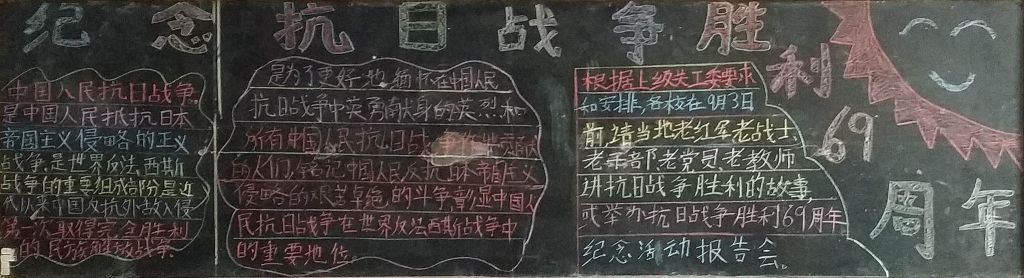 纪念抗日战争胜利69周年
中国人民抗日战争
是中国人民抵抗日本
帝国主义侵略的正义
战争,是世界反法西斯
战争的重要组成部分,是近
代以来中国反抗外敌入侵
第一次取得完全胜利
的民族解放战争
是为了更好地缅怀在中国人民
抗日战争中英勇献身的英烈和
所有中国人民抗日战争作出贡献
的人们,铭记中国人民反抗日本帝国主义
侵略的艰苦卓绝的斗争,彰显中国人
民抗日战争在世界反法西斯战争中
的重要地位。
根据上级关工委要求
和安排,各校在9月3日
前,请当地老红军老战士
老干部老党员老教师
讲抗日战争胜利的故事
或举办抗日战争胜利69周年
纪念活动报告会。